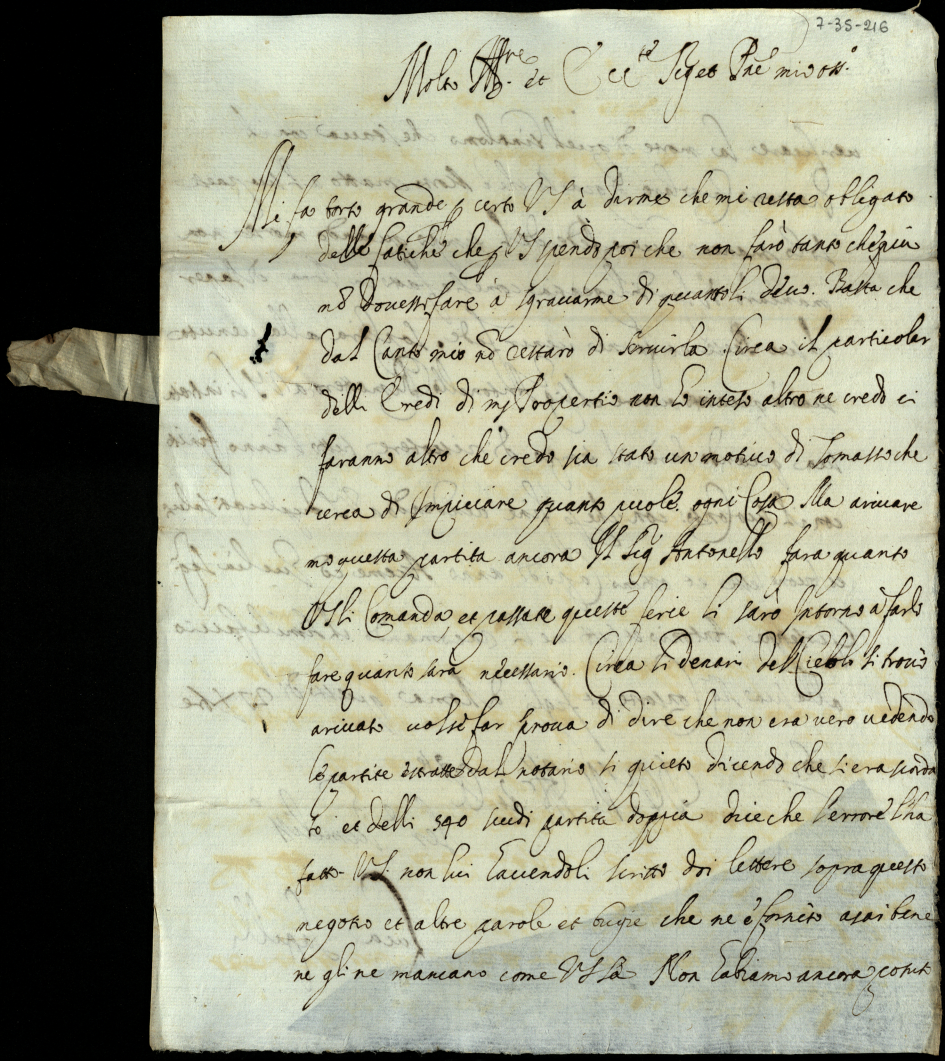 7-35-216
Molto Ill.re et Ecc.te Sig.r et P.ne mio oss.
Mi fa torto grande p certo VS à darme che mi resta obligato
delle fatiche che p VS spendo poi che non farò tanto che più
nõ dovessi fare a sgravarme di quanto li devo. Basta che
dal Canto mio nõ cessarò di servirla. Circa il particolar
delli Eredi di m Propertio non ho inteso altro ne credo ci
faranno altro che credo sia stato un motivo di Tomasso che
cerca di Impiciare quanto puole. ogni Cosa Ma arivare
mo questa partita ancora Il Sig Antonello fara quanto
VS li Comanda, et passate queste ferie li sarò Intorno à farlo
fare quanto sarà necessario. Circa li denari del Ciebli si trovò
arivato volse far prova di dire che non era vero vedendo
le partite estratte dal notario si quieto dicendo che si era scorda
to et delli 540 scudi partita doppia dice che l'errore l'ha
fatto VS. non lui havendoli scritto doi lettere sopra questo
negotio et altre parole et bugie che ne è fornito asai bene
ne gli ne mancano come VS sà Non habiamo ancora potut